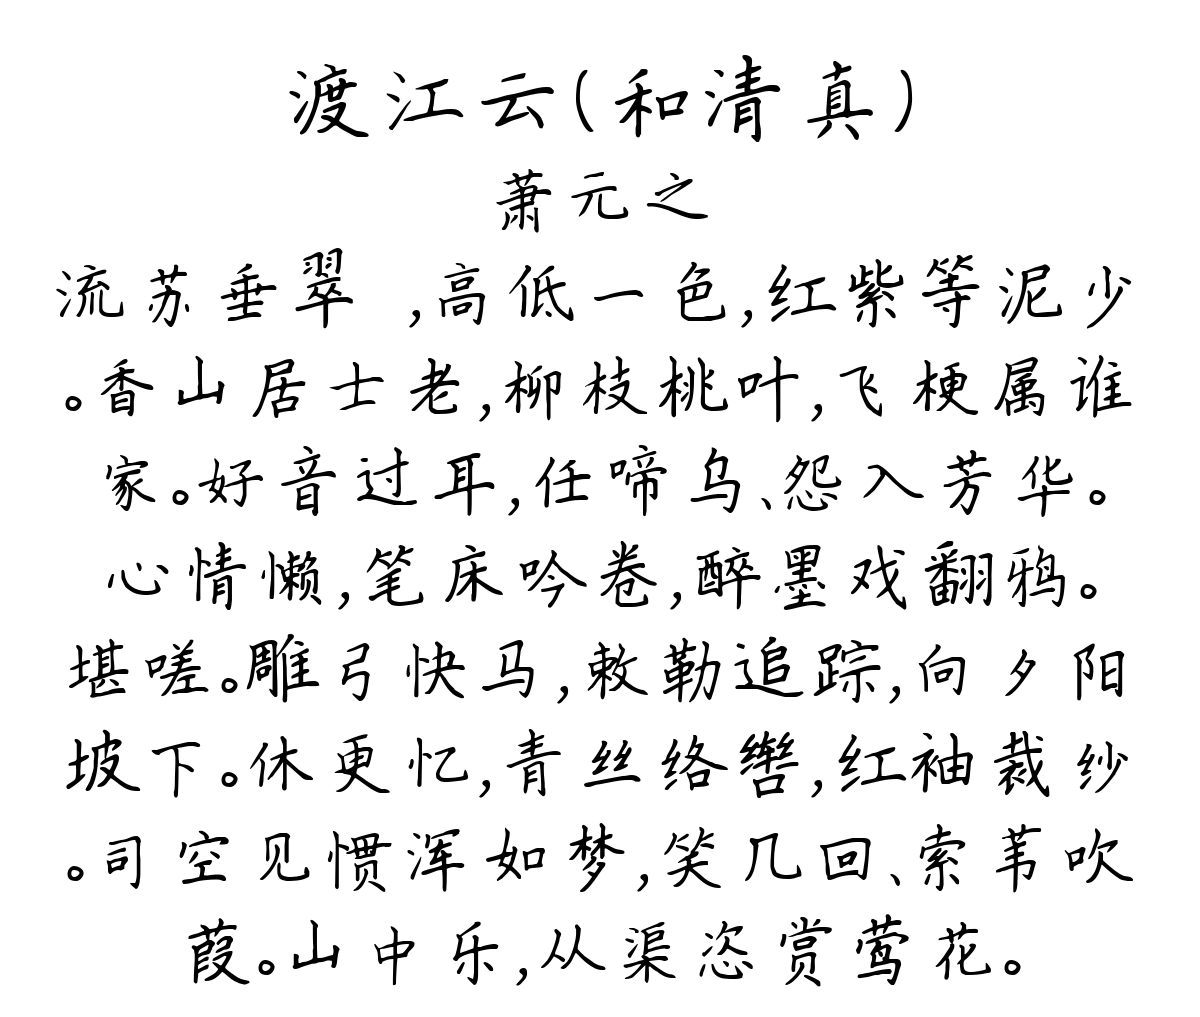 渡江云(和清真)
萧元之
流苏垂翠 ,高低一色,红紫等泥少
。香山居士老,柳枝桃叶,飞梗属谁
家。好音过耳,任啼乌、怨入芳华。
心情懒,笔床吟卷,醉墨戏翻鸦。
堪嗟。雕弓快马,敕勒追踪,向夕阳
坡下。休更忆,青丝络辔,红袖裁纱
。司空见惯浑如梦,笑几回、索苇吹
葭。山中乐,从渠恣赏莺花。